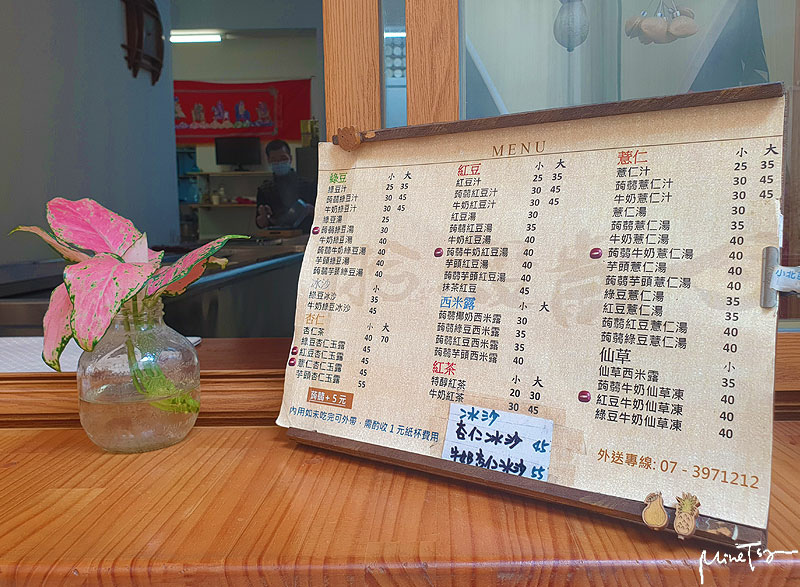 MENU
綠豆 小 大
綠豆汁 25 35
蒟蒻綠豆汁 30 45
牛奶綠豆汁 30 45
綠豆湯 25
蒟蒻綠豆湯 30
牛奶綠豆湯 30
蒟蒻牛奶綠豆湯 35
芋頭綠豆湯 40
蒟蒻芋頭綠豆湯 40
冰沙
綠豆冰沙 35
牛奶綠豆冰沙 45
杏仁 小 大
杏仁茶 40 70
綠豆杏仁玉露 45
紅豆杏仁玉露 45
薏仁杏仁玉露 45
芋頭杏仁玉露 55
蒟蒻+5元
內用如未吃完可外帶，需酌收1元紙杯費用
紅豆 小 大
紅豆汁 25 35
蒟蒻紅豆汁 30 45
牛奶紅豆汁 30 45
紅豆湯 30
蒟蒻紅豆湯 35
牛奶紅豆湯 35
蒟蒻牛奶紅豆湯 40
芋頭紅豆湯 40
蒟蒻芋頭紅豆湯 40
抹茶紅豆 40
西米露 小 大
蒟蒻椰奶西米露 30
蒟蒻綠豆西米露 35
蒟蒻紅豆西米露 35
蒟蒻芋頭西米露 40
紅茶 小 大
特醇紅茶 20 30
牛奶紅茶 30 45
冰沙
杏仁冰沙 45
牛奶杏仁冰沙 55
薏仁 小 大
薏仁汁 25 35
蒟蒻薏仁汁 30 45
牛奶薏仁汁 30 45
薏仁湯 30
蒟蒻薏仁湯 35
牛奶薏仁湯 35
蒟蒻牛奶薏仁湯 40
芋頭薏仁湯 40
蒟蒻芋頭薏仁湯 40
綠豆薏仁湯 35
紅豆薏仁湯 35
蒟蒻紅豆薏仁湯 40
蒟蒻綠豆薏仁湯 40
仙草 小
仙草西米露 35
蒟蒻牛奶仙草凍 40
紅豆牛奶仙草凍 40
綠豆牛奶仙草凍 40
外送專線: 07 - 3971212
小北
MineTsa